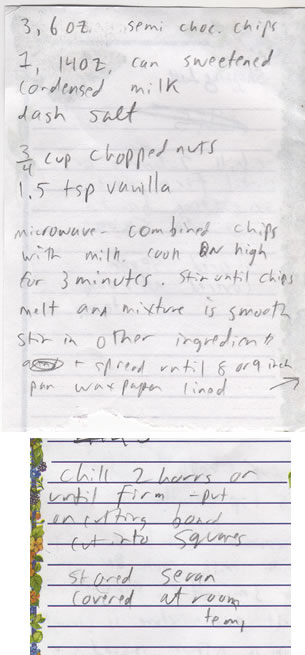 3, 6 oz. semi choc. chips
1, 14 oz, can sweetened
condensed milk
dash salt
3/4 cup chopped nuts
1.5 tsp vanilla
microwave - combined chips
with milk. cook on high
for 3 minutes. Stir until chips
melt and mixture is smooth
stir in other ingredients
+ spread until 8 or 9 inch
pan wax paper lined →
chill 2 hours or
until firm - put
on cutting board
cut into squares
stored
covered at room
temp